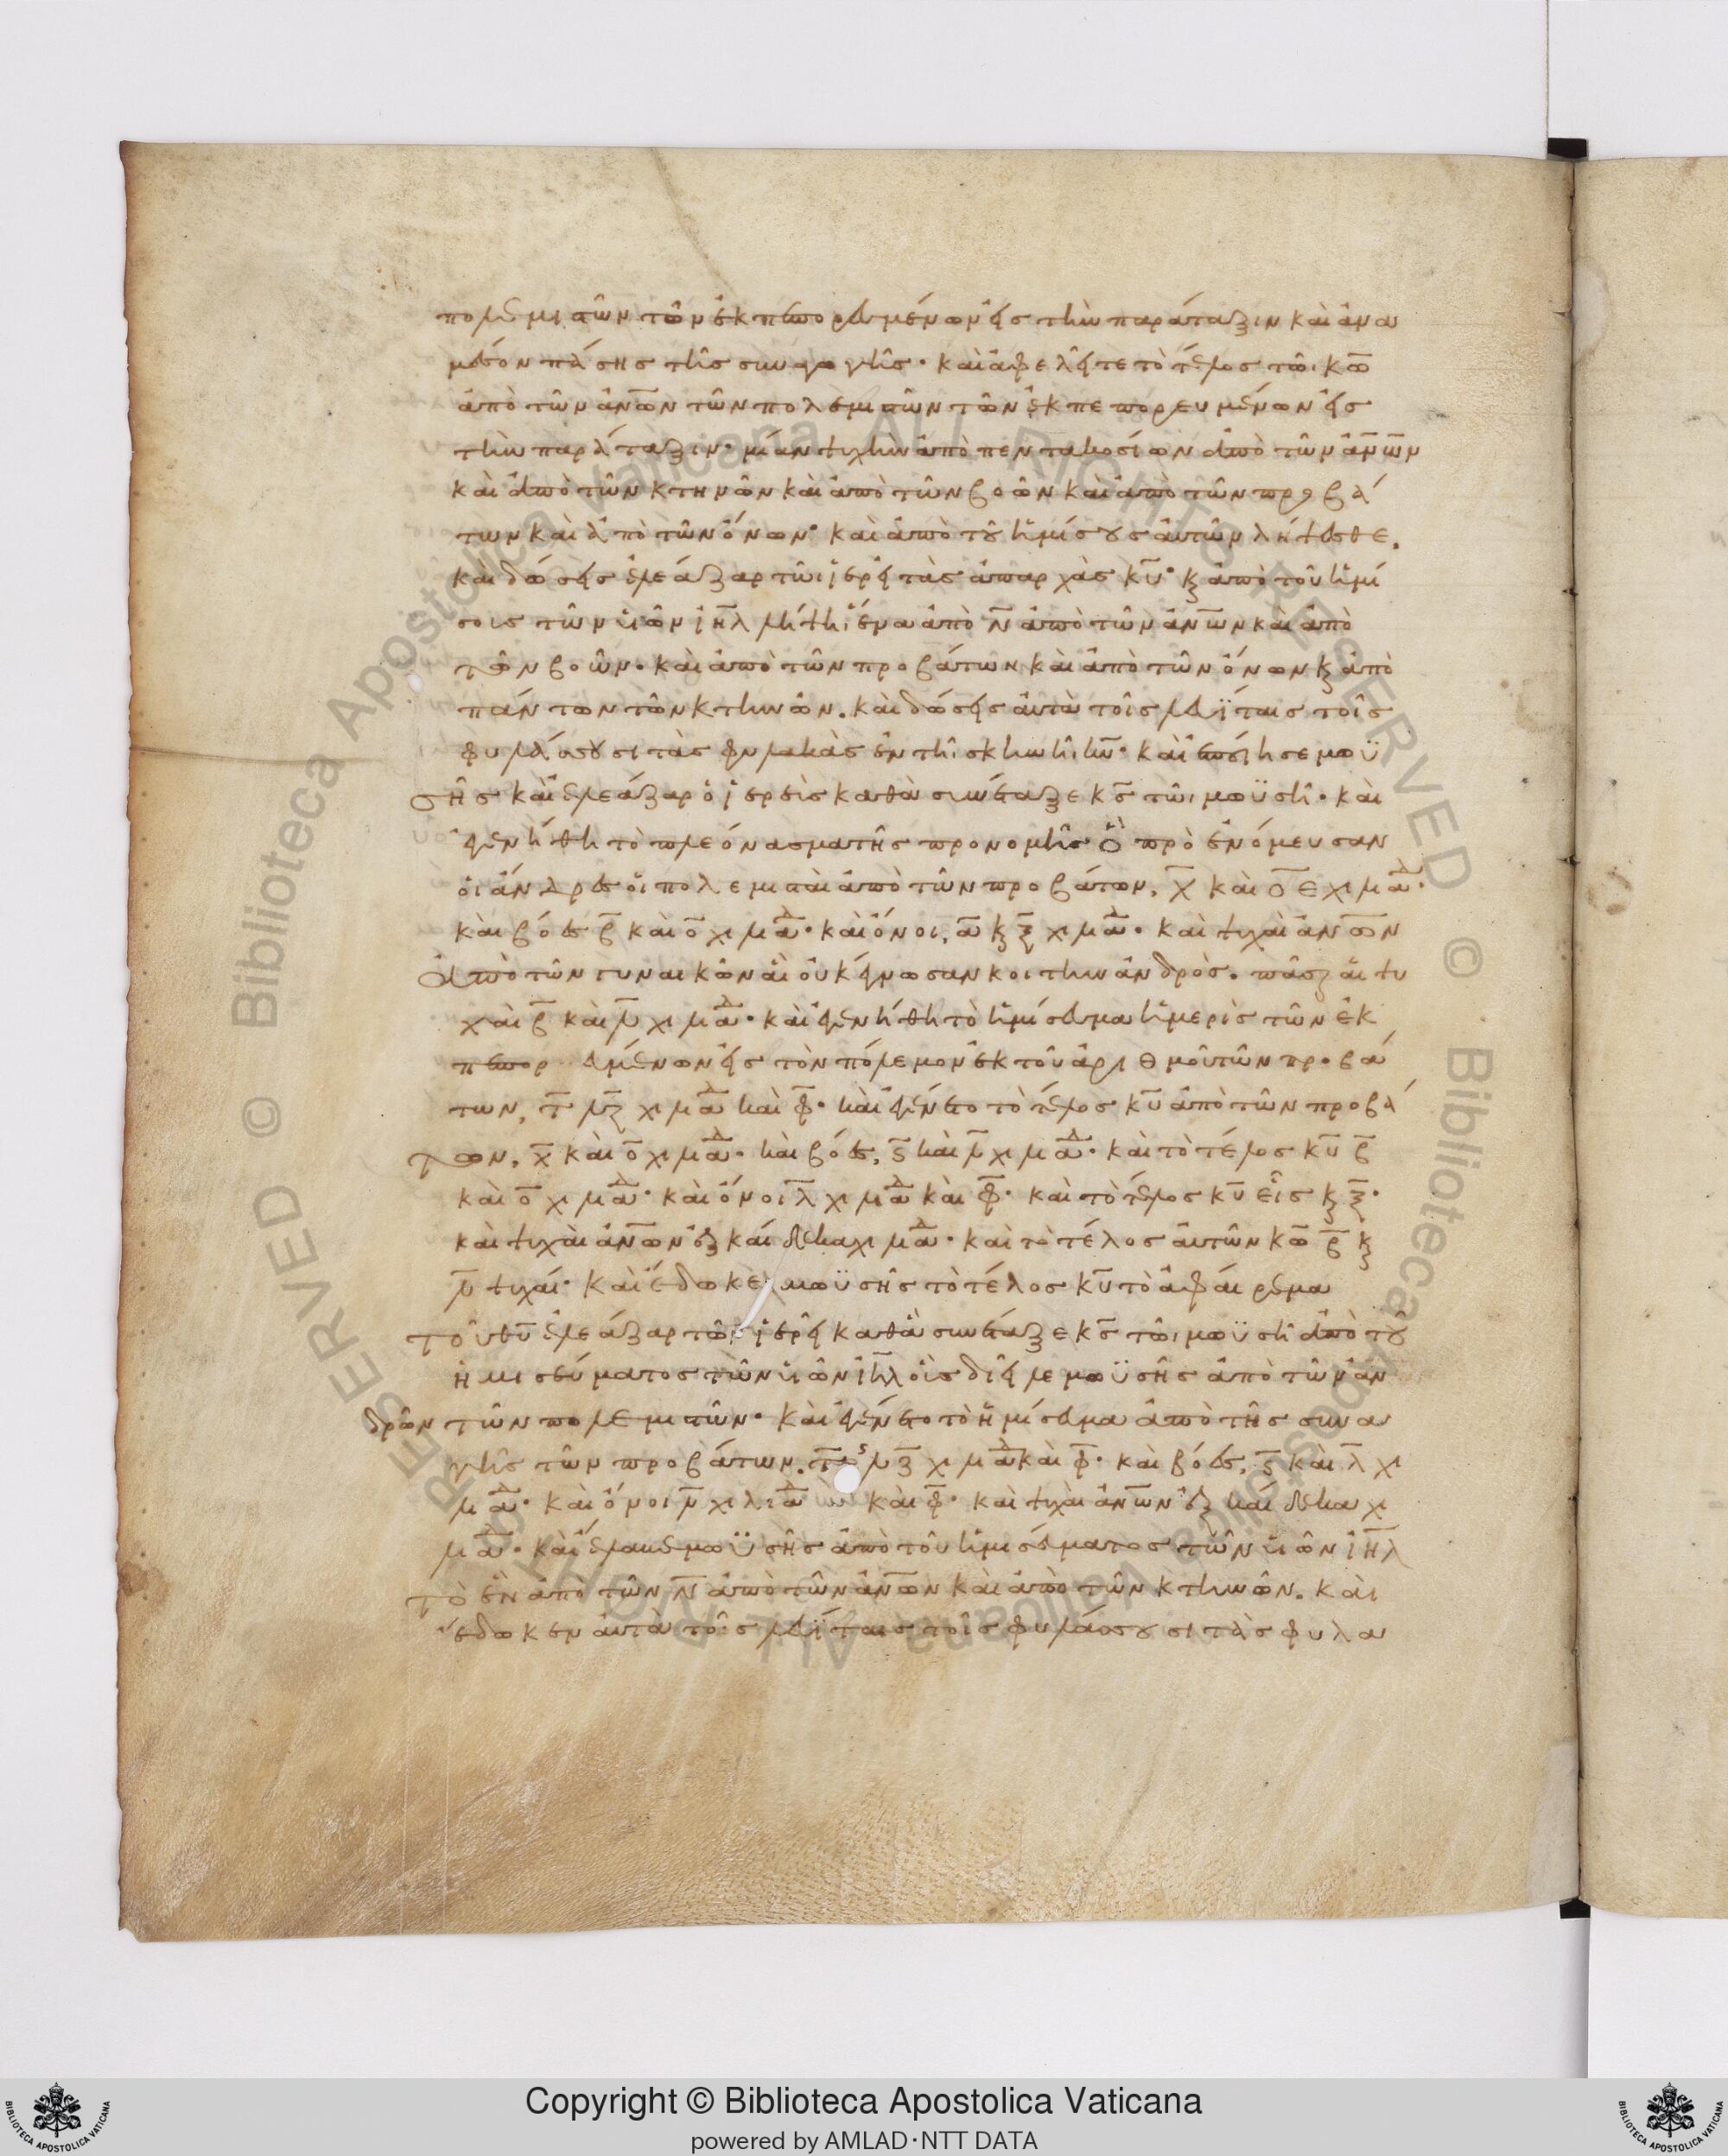 πολεμιστῶν τῶν ἐκπεπορευμένων εἰς τὴν παράταξιν καὶ ἀνα
μέσον πάσης τῆς συναγωγῆς· καὶ ἀφελεῖτε τὸ τέλος τῶι κ̅ω̅
ἀπὸ τῶν ἀν̅ω̅ν τῶν πολεμιστῶν τῶν ἐκπεπορευμένων εἰς
τὴν παράταξιν· μίαν ψυχὴν ἀπὸ πεντακοσίων ἀπὸ τῶν ἀν̅ω̅ν
καὶ ἀπὸ τῶν κτηνῶν καὶ ἀπὸ τῶν βοῶν καὶ ἀπὸ τῶν προβά
των καὶ ἀπὸ τῶν ὄνων· καὶ ἀπὸ τοῦ ἡμίσους αὐτῶν λήψεσθε.
καὶ δώσεις ἐλεάζαρ τῶι ἱερεῖ τὰς ἀπαρχὰς κ̅υ̅· κ̀ ἀπὸ τοῦ ἡμί
σοις τῶν υἱῶν ἰη̅λ λήψηι ἕνα ἀπὸ ν̅ ἀπὸ τῶν ἀν̅ω̅ν καὶ ἀπὸ
τῶν βοῶν· καὶ ἀπὸ τῶν προβάτων καὶ ἀπὸ τῶν ὄνων κ̀ ἀπὸ
πάντων τῶν κτηνῶν. καὶ δώσεις αὐτὰ τοῖς λευΐταις τοῖς
φυλάσσουσι τὰς φυλακὰς ἐν τῆι σκηνῆι κ̅υ̅· καὶ ἐποίησε μωϋ
σῆς καὶ ἐλεάζαρ ὁ ἱερεὺς καθὰ συνέταξε κ̅ς̅ τῶι μωϋσῆ· καὶ
ἐγενήθη τὸ πλεόνασμα τῆς προνομῆς ὃ προενόμευσαν
οἱ ἄνδρες οἱ πολεμισταὶ ἀπὸ τῶν προβάτων, χ̅ καὶ ο̅ε χιλιάδ·
καὶ βόες β̅ καὶ ο̅ χιλιάδ· καὶ ὄνοι, α̅ κ̀ ξ̅ χιλιάδ· καὶ ψυχαὶ ἀν̅ω̅ν
ἀπὸ τῶν γυναικῶν αἳ οὐκ ἔγνωσαν κοίτην ἀνδρὸς. πᾶσαι αἱ ψυ
χαὶ β̅ καὶ λ̅ χιλιάδ· καὶ ἐγενήθη τὸ ἡμίσευμα ἡ μερὶς τῶν ἐκ
πεπορευμένων εἰς τὸν πόλεμον ἐκ τοῦ ἀριθμοῦ τῶν προβά
των, τ̅ λ̅ζ̅ χιλιάδ καὶ φ̅· καὶ ἐγένετο τὸ τέλος κ̅υ̅ ἀπὸ τῶν προβά
των, χ̅ καὶ ο̅ε̅· καὶ βόες, ς̅ καὶ λ̅ χιλιάδ· καὶ τὸ τέλος κ̅υ̅ β̅
καὶ ο̅ χιλιάδ· καὶ ὄνοι λ̅ χιλιάδ καὶ φ̅· καὶ τὸ τέλος κ̅υ̅ εἷς κ̀ ξ̅·
καὶ ψυχαὶ ἀν̅ω̅ν ἓξ καὶ δέκα χιλιάδ· καὶ τὸ τέλος αὐτῶν κ̅ω̅ β̅ κ̀
λ̅ ψυχαί· καὶ ἔδωκε μωϋσῆς τὸ τέλος κ̅υ̅ τὸ ἀφαίρεμα
τοῦ θ̅υ̅ ἐλεάζαρ τῶι ἱερεῖ καθὰ συνέταξε κ̅ς̅ τῶι μωϋσῆ ἀπὸ τοῦ
ἡμισεύματος τῶν υἱῶν ἰη̅λ οἷς διεῖλε μωϋσῆς ἀπὸ τῶν ἀν
δρῶν τῶν πολεμιστῶν· καὶ ἐγένετο τὸ ἡμίσευμα ἀπὸ τῆς συνα
γῆς τῶν προβάτων. τ̅ λ̅ζ̅ χιλιάδ καὶ φ̅· καὶ βόες, ς̅ καὶ λ̅ χι
λιάδ· καὶ ὄνοι λ̅ χιλιάδ καὶ φ̅· καὶ ψυχαὶ ἀν̅ω̅ν ἓξ καὶ δέκα χι
λιάδ· καὶ ἔλαβε μωϋσῆς ἀπὸ τοῦ ἡμισεύματος τῶν υἱῶν ἰη̅λ
τὸ ἓν ἀπὸ τῶν ν̅ ἀπὸ τῶν ἀν̅ω̅ν καὶ ἀπὸ τῶν κτηνῶν. καὶ
ἔδωκεν αὐτὰ τοῖς λευΐταις τοῖς φυλάσσουσι τὰς φυλα
Copyright © Biblioteca Apostolica Vaticana
powered by AMLAD·NTT DATA